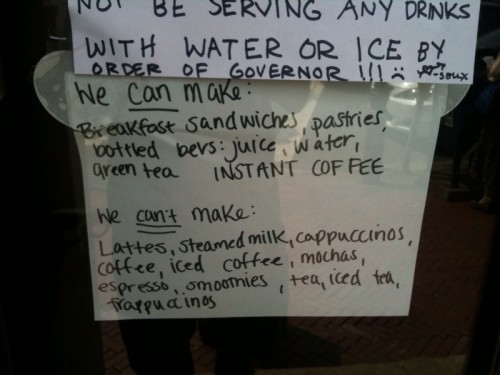 NOT BE SERVING ANY DRINKS
WITH WATER OR ICE BY
ORDER OF GOVERNOR !!!
We can make:
Breakfast sandwiches, pastries,
bottled bevs: juice, water,
green tea INSTANT COFFEE
We can't make:
Lattes, steamed milk, cappuccinos,
coffee, iced coffee, mochas,
espresso, smoothies, tea, iced tea,
frappuccinos